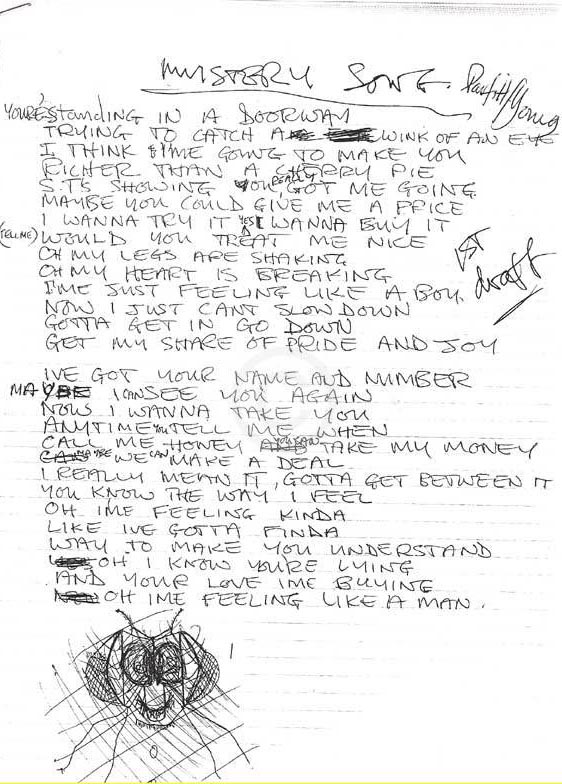 MYSTERY SONG. Parfitt/Young
YOU'RE STANDING IN A DOORWAY
TRYING TO CATCH A WINK OF AN EYE
I THINK IME GOING TO MAKE YOU
RICHER THAN A CHERRY PIE
S.T'S SHOWING YOU REALLY GOT ME GOING
MAYBE YOU COULD GIVE ME A PRICE
I WANNA TRY IT YES I WANNA BUY IT
(TELL ME) WOULD YOU TREAT ME NICE
OH MY LEGS ARE SHAKING
OH MY HEART IS BREAKING
I'ME JUST FEELING LIKE A BOY.
NOW I JUST CANT SLOW DOWN
GOTTA GET IN GO DOWN
GET MY SHARE OF PRIDE AND JOY
1ST draft
IVE GOT YOUR NAME AND NUMBER
MAYBE I CAN SEE YOU AGAIN
NOW I WANNA TAKE YOU
ANYTIME YOU TELL ME WHEN
CALL ME HONEY YOU CAN TAKE MY MONEY
MAYBE WE CAN MAKE A DEAL
I REALLY MEAN IT, GOTTA GET BETWEEN IT
YOU KNOW THE WAY I FEEL
OH IME FEELING KINDA
LIKE IVE GOTTA FINDA
WAY TO MAKE YOU UNDERSTAND
OH I KNOW YOURE LYING
AND YOUR LOVE IME BUYING
OH IME FEELING LIKE A MAN.